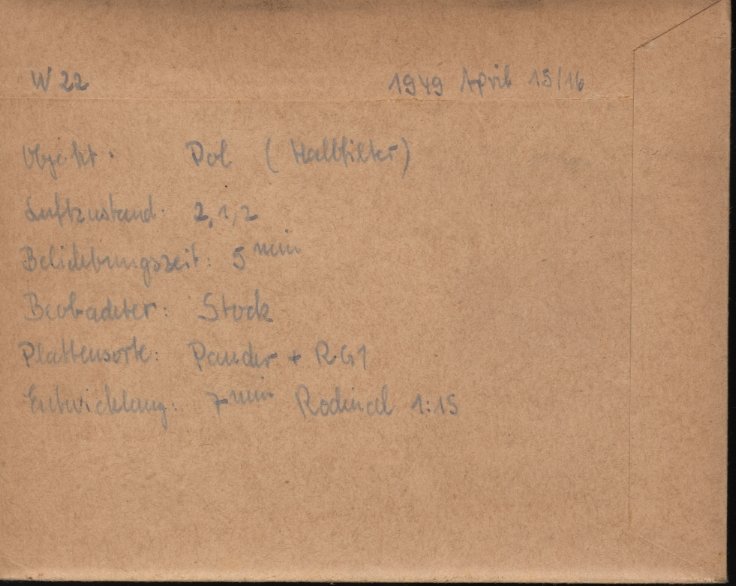 W 22 1949 April 15/16
Objekt: Pol (Halbfilter)
Luftzustand: 2,1,2
Belichtungszeit: 5 min
Beobachter: Stock
Plattensorte: Panchr + RG1
Entwicklung: 7 min Rodinal 1:15